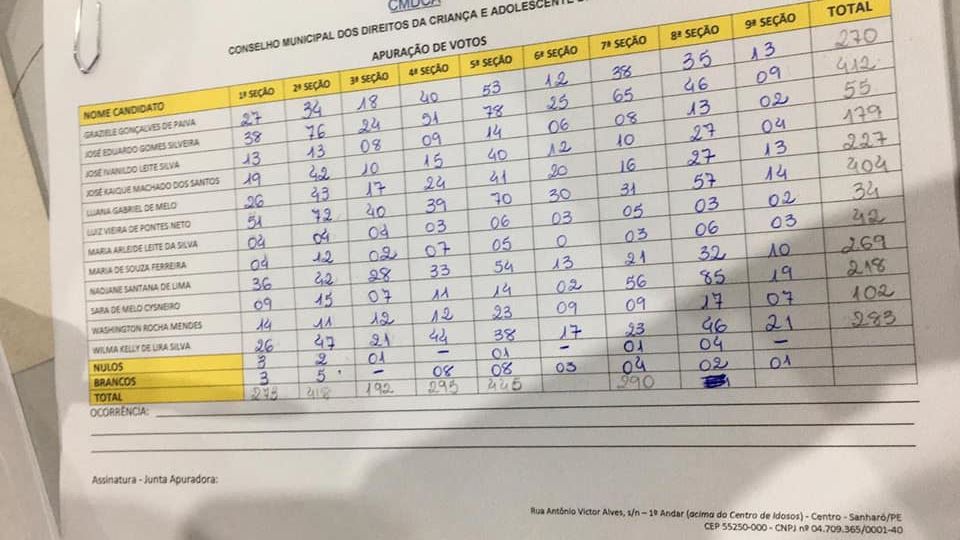 CMDCA
CONSELHO MUNICIPAL DOS DIREITOS DA CRIANÇA E ADOLESCENTE
APURAÇÃO DE VOTOS
NOME CANDIDATO 1ª SEÇÃO 2ª SEÇÃO 3ª SEÇÃO 4ª SEÇÃO 5ª SEÇÃO 6ª SEÇÃO 7ª SEÇÃO 8ª SEÇÃO 9ª SEÇÃO TOTAL
GRAZIELE GONÇALVES DE PAIVA 27 34 18 40 53 12 38 35 13 270
JOSÉ EDUARDO GOMES SILVEIRA 38 76 24 51 78 25 65 46 09 412
JOSÉ IVANILDO LEITE SILVA 13 13 08 09 14 06 08 13 02 55
JOSÉ KAIQUE MACHADO DOS SANTOS 19 42 10 15 40 12 10 27 04 179
LUANA GABRIEL DE MELO 26 43 17 24 41 20 16 27 13 227
LUIZ VIEIRA DE PONTES NETO 51 72 40 39 70 30 31 57 14 404
MARIA ARLEIDE LEITE DA SILVA 04 04 04 03 06 03 05 03 02 34
MARIA DE SOUZA FERREIRA 04 12 02 07 05 0 03 06 03 42
NADJANE SANTANA DE LIMA 36 42 28 33 54 13 21 32 10 269
SARA DE MELO CYSNEIRO 09 15 07 11 14 02 56 85 19 218
WASHINGTON ROCHA MENDES 14 11 12 12 23 09 09 17 07 102
WILMA KELLY DE LIRA SILVA 26 47 21 44 38 17 23 46 21 283
NULOS 3 2 01 - 01 - 01 04 -
BRANCOS 3 5 - 08 08 03 04 02 01
TOTAL 273 418 192 295 445 290
OCORRÊNCIA:
Assinatura - Junta Apuradora:
Rua Antônio Victor Alves, s/n – 1º Andar (acima do Centro de Idosos) - Centro - Sanharó/PE
CEP 55250-000 - CNPJ nº 04.709.365/0001-40